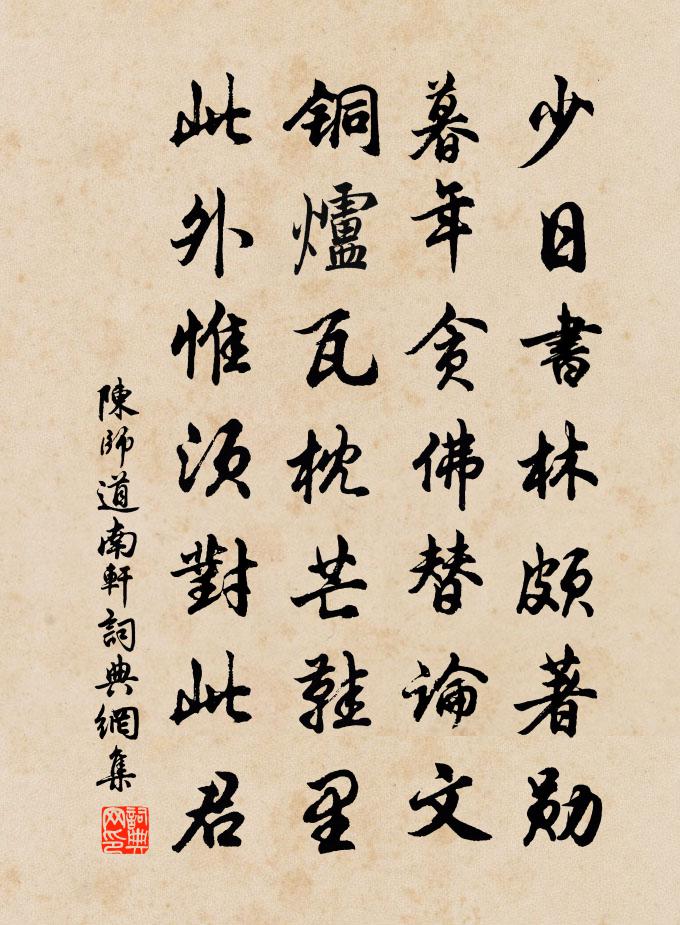 少日書林頗著勛
暮年貪佛替論文
銅爐瓦枕芒鞋里
此外惟須對此君
陳師道南軒詞典網集
詞典网印